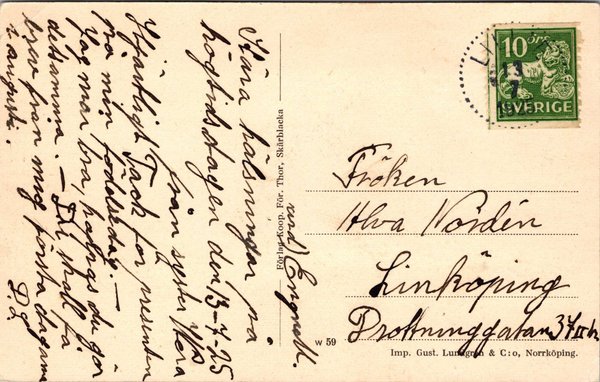 Kära hälsningar på
högtidsdagen den 13-7-25
från syster Klara
Hjärtligt Tack för presenten
på min födelsedag. —
Jag mår bra, hoppas du gör
detsamma. — Du skall få
brev från mig första dagarna
i augusti.
D.S.
Engvall.
Förlag Koop. För. Thor, Skärblacka
w 59
10 öre
SVERIGE
13
7
Fröken
Alva Nordén
Linköping
Drottninggatan 37
Imp. Gust. Lundgren & C:o, Norrköping.